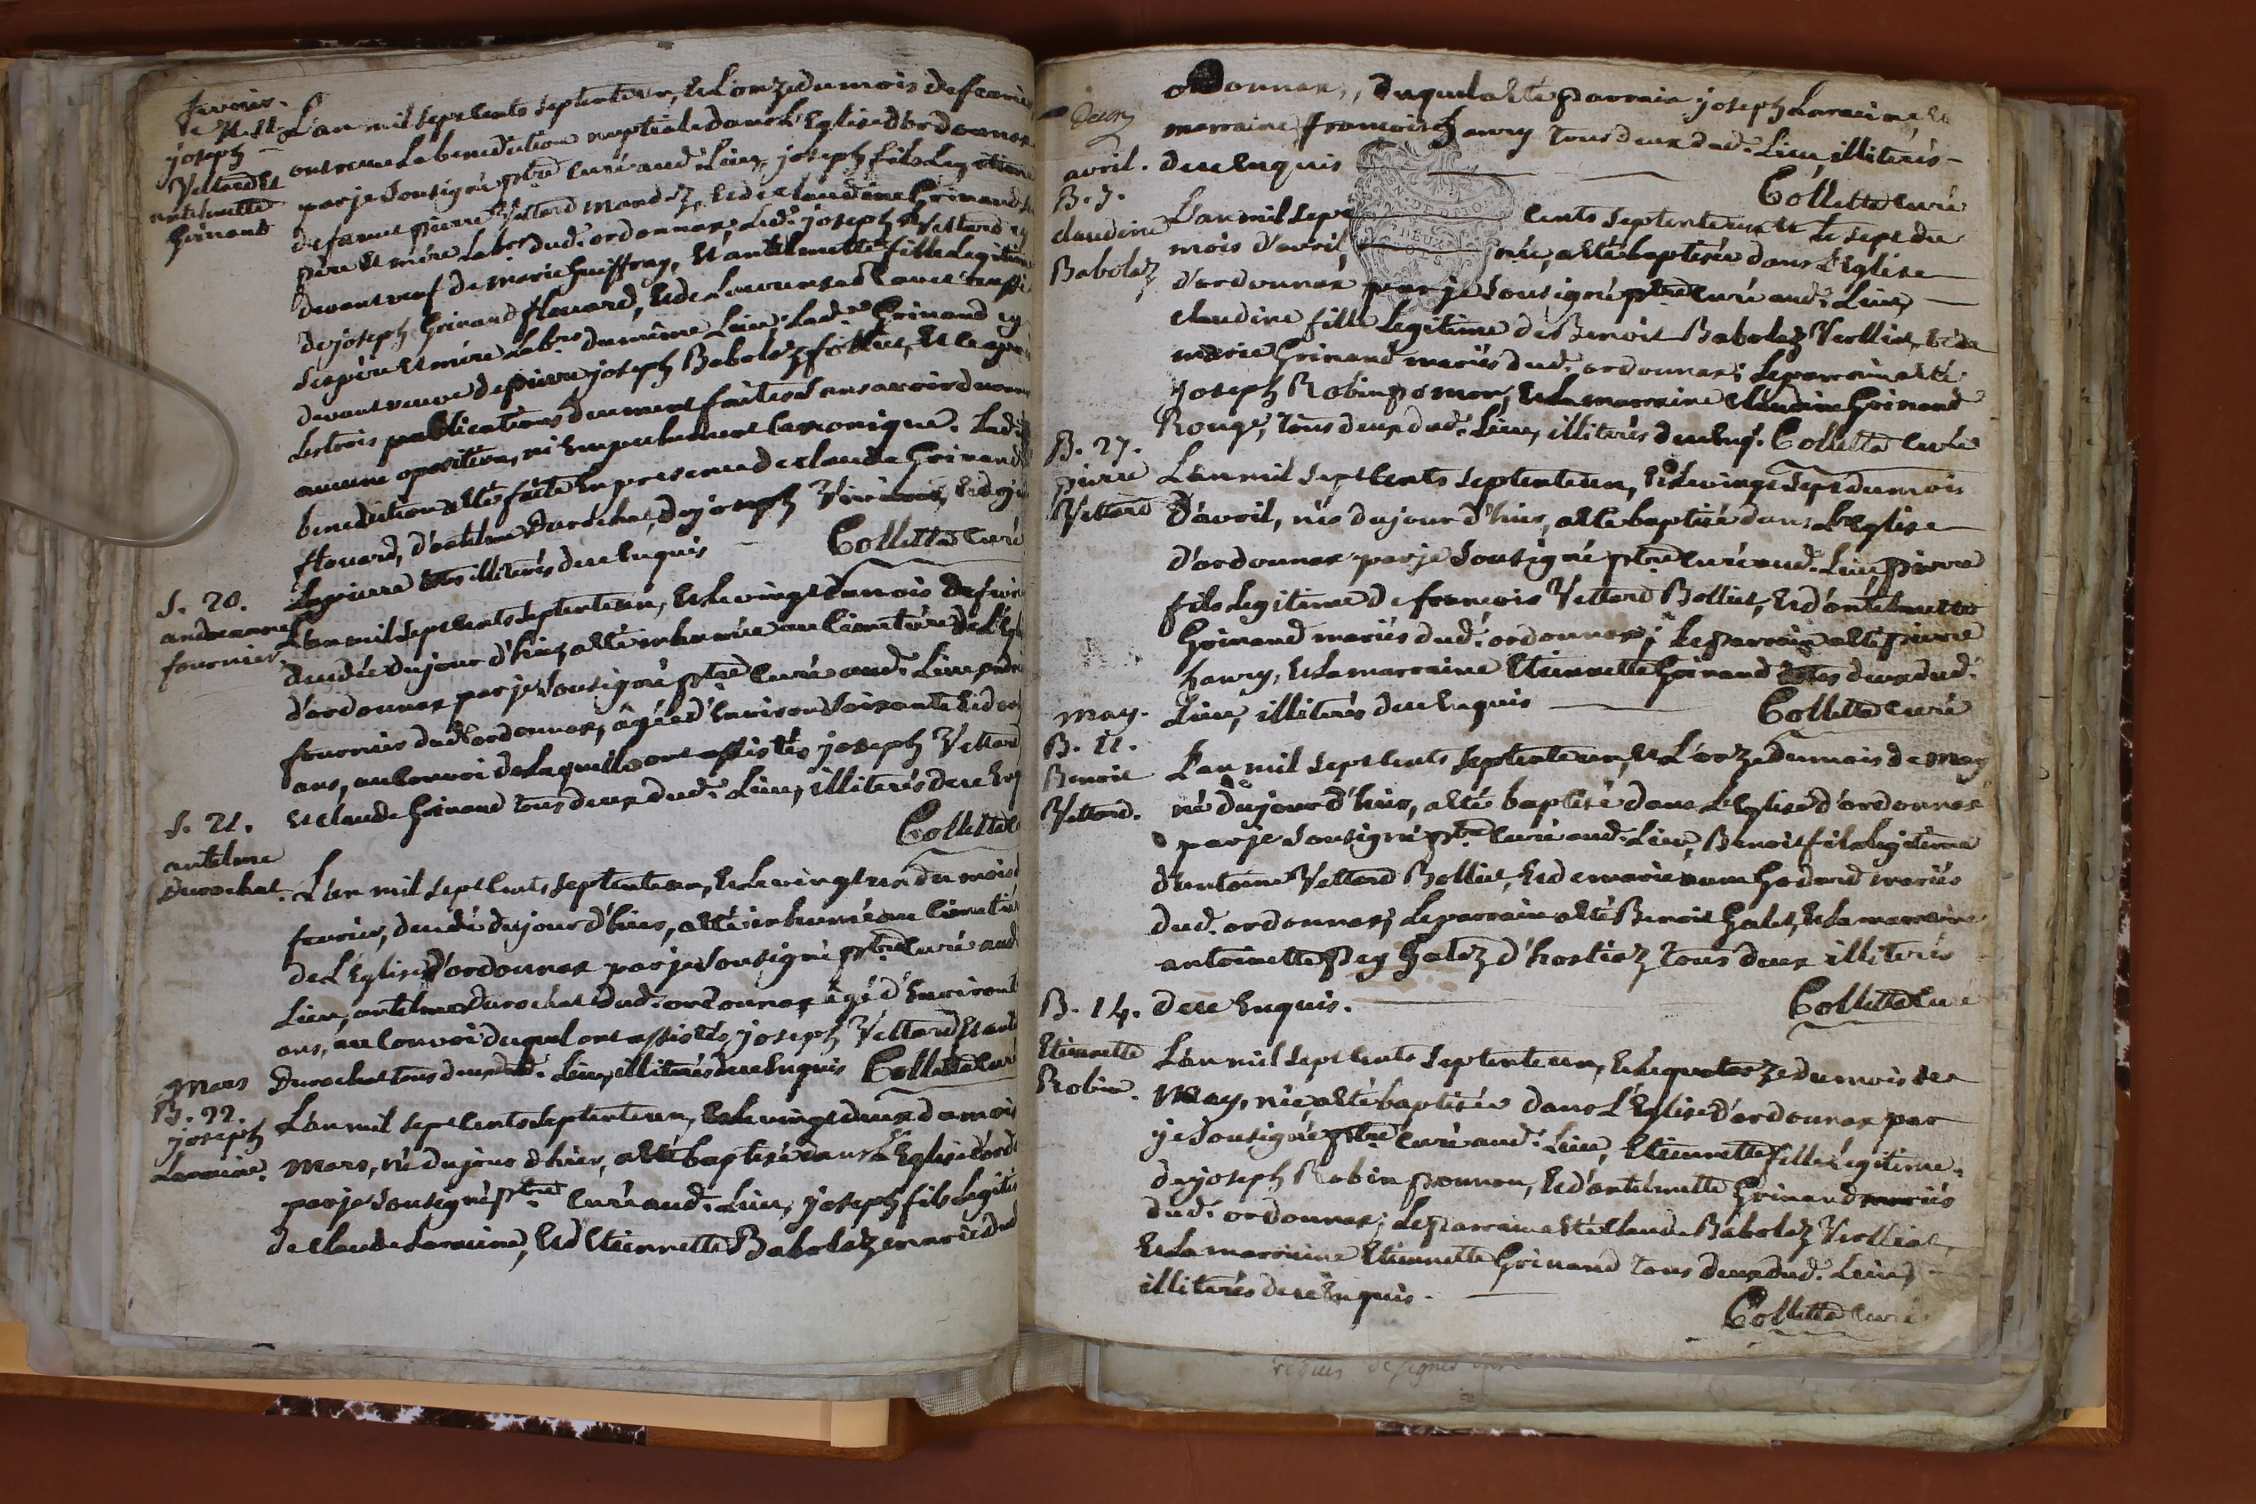 fevrier.
le M. 11.
joseph
Vettard Et
antelmette
Grinand
L'an mil sept Cents septente un, Et L'onze du mois de fevrier
ont reçue La benediction nuptiale dans L'Eglise d'ordonnax
par je soussigné ptre Curé aud. Lieu, joseph fils Legitime
de feu pierre Vettard mandz, Et de claudine Grinand
père Et mère Labrs dud. ordonnax; Led. joseph Vettard
devant veuf de marie Guiffray, Et antelmette fille Legitime
de joseph Grinand flouard, Et de
ses père Et mère Labrs du même Lieu; Lad. Grinand
devant veuve de pierre joseph Babolaz Et ce après
Les trois publications deuement faites sans avoir
aucune oposition, ni Empechement Canonique. Lad.
benediction a été faite En presence de claude Grinand
flouard, d'antelme Durochat, de joseph
Lapierre tous illiterés de ce Enquis Collettaz Curé
S. 20.
andreanne
fournier
L'an mil sept Cents septente un, Et Le vingt du mois de fevrier
decedée du jour d'hier, a été inhumée au Cimetière de L'Eglise
d'ordonnax par je soussigné ptre Curé aud. Lieu
fournier dud. ordonnax, âgée d'Environ soixante
ans, au Convoi de Laquelle ont assistés joseph Vettard
Et claude Grinand tous deux dud. Lieu, illiterés de ce Enq
Collettaz
S. 21.
antelme
Durochat.
L'an mil sept Cents septente un, Et Le vingt un du mois
fevrier, decedé du jour d'hier, a été inhumé au Cimetière
de L'Eglise d'ordonnax par je soussigné ptre Curé aud
Lieu, antelme Durochat dud. ordonnax âgé d'Environ
ans, au Convoi duquel ont assistés joseph Vettard Et
Durochat tous deux dud. Lieu, illiterés de ce Enquis Collettaz Curé
Mars
B. 22.
joseph
Laraine.
L'an mil sept Cents septente un, Et Le vingt deux du mois
Mars, né du jour d'hier, a été baptisé dans L'Eglise d'ord
par je soussigné ptre Curé aud. Lieu, joseph fils Legiti
de claude Laraine, Et d'Etiennette Babolaz mariés dud
ordonnax, Duquel a été parrain joseph Laraine, Et
marraine françoise hanry tous deux dud. Lieu illiterés
de ce Enquis
Collettaz Curé
avril.
B. 7.
claudine
Babolaz
L'an mil sept Cents septente un, Et Le sept du
mois d'avril, née, a été baptisée dans L'Eglise
d'ordonnax par je soussigné ptre Curé aud. Lieu,
claudine fille Legitime de Benoit Babolaz Violliat, Et de
marie Grinand mariés dud. ordonnax; Le parrain a été
joseph Robin pomon, Et La marraine claudine Grinand
Rouge, tous deux dud. Lieu, illiterés de ce Enq. Collettaz Curé
B. 27.
pierre
Vettard
L'an mil sept Cents septente un, Et Le vingt sept du mois
D'avril, né du jour d'hier, a été baptisé dans L'Eglise
d'ordonnax par je soussigné ptre Curé aud. Lieu pierre
fils Legitime de françois Vettard Bolliet, Et d'antelmette
Grinand mariés dud. ordonnax; Le parrain a été pierre
hanry, Et La marraine Etiennette Grinand tous deux dud.
Lieu, illiterés de ce Enquis
Collettaz Curé
May.
B. 11.
Benoit
Vettard.
L'an mil sept Cents septente un, Et L'onze du mois de may
né du jour d'hier, a été baptisé dans L'Eglise d'ordonnax
par je soussigné ptre Curé aud. Lieu, Benoit fils Legitime
d'antoine Vettard Bolliet, Et de marie anne Godard mariés
dud. ordonnax; Le parrain a été Benoit Galet, Et La marraine
antoinette Pey Galez d'hostiaz tous deux illiterés
de ce Enquis.
Collettaz Curé
B. 14.
Etiennette
Robin.
L'an mil sept Cents septente un, Et Le quatorze du mois de
May, née a été baptisée dans L'Eglise d'ordonnax par
je soussigné ptre Curé aud. Lieu, Etiennette fille Legitime
de joseph Robin pomon, Et d'antelmette Grinand mariés
dud. ordonnax; Le parrain a été Claude Babolaz Violliat,
Et La marraine Etiennette Grinand tous deux dud. Lieu,
illiterés de ce Enquis.
Collettaz Curé